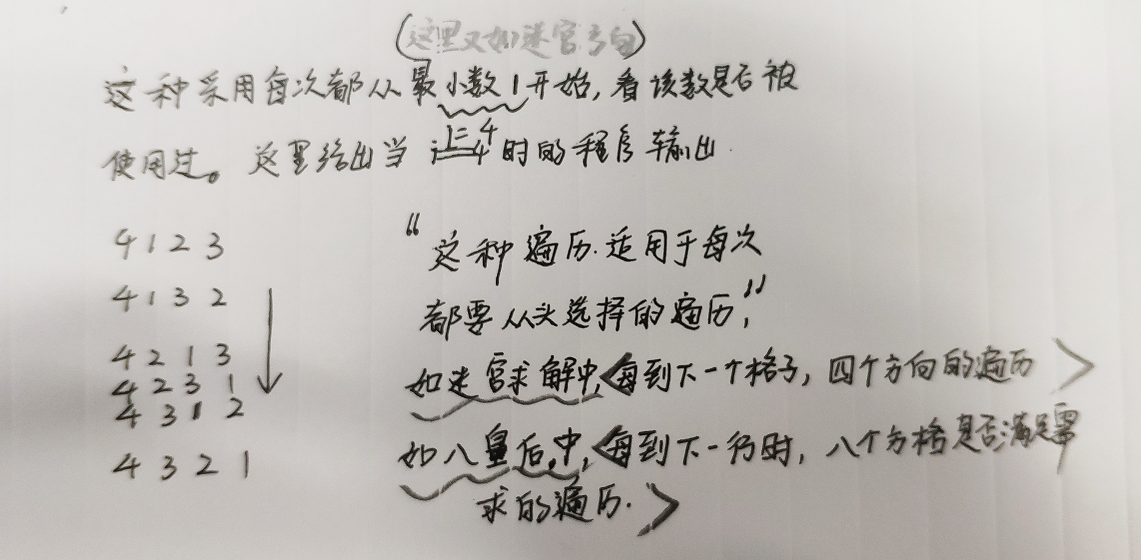 (这里又如迷宫方向)
这种采用每次都从最小数1开始,看该数是否被
使用过。这里给出当i=4时的程序输出.
4 1 2 3
4 1 3 2
4 2 1 3
4 2 3 1
4 3 1 2
4 3 2 1
“这种遍历.适用于每次
都要从头选择的遍历,”
如迷宫求解中,<每到下一个格子,四个方向的遍历>
如八皇后,中,<每到下一行时,八个方格是否满足需
求的遍历.>